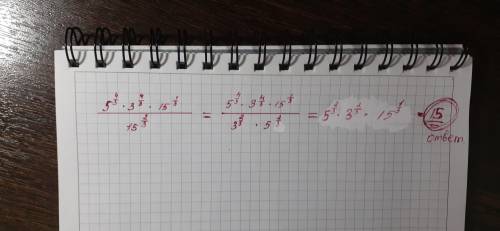 5^{4/3} · 3^{4/3} · 15^{1/3} / 15^{2/3} = 5^{4/3} · 3^{4/3} · 15^{1/3} / 3^{2/3} · 5^{2/3} = 5^{2/3} · 3^{2/3} · 15^{1/3} = 15
ответ